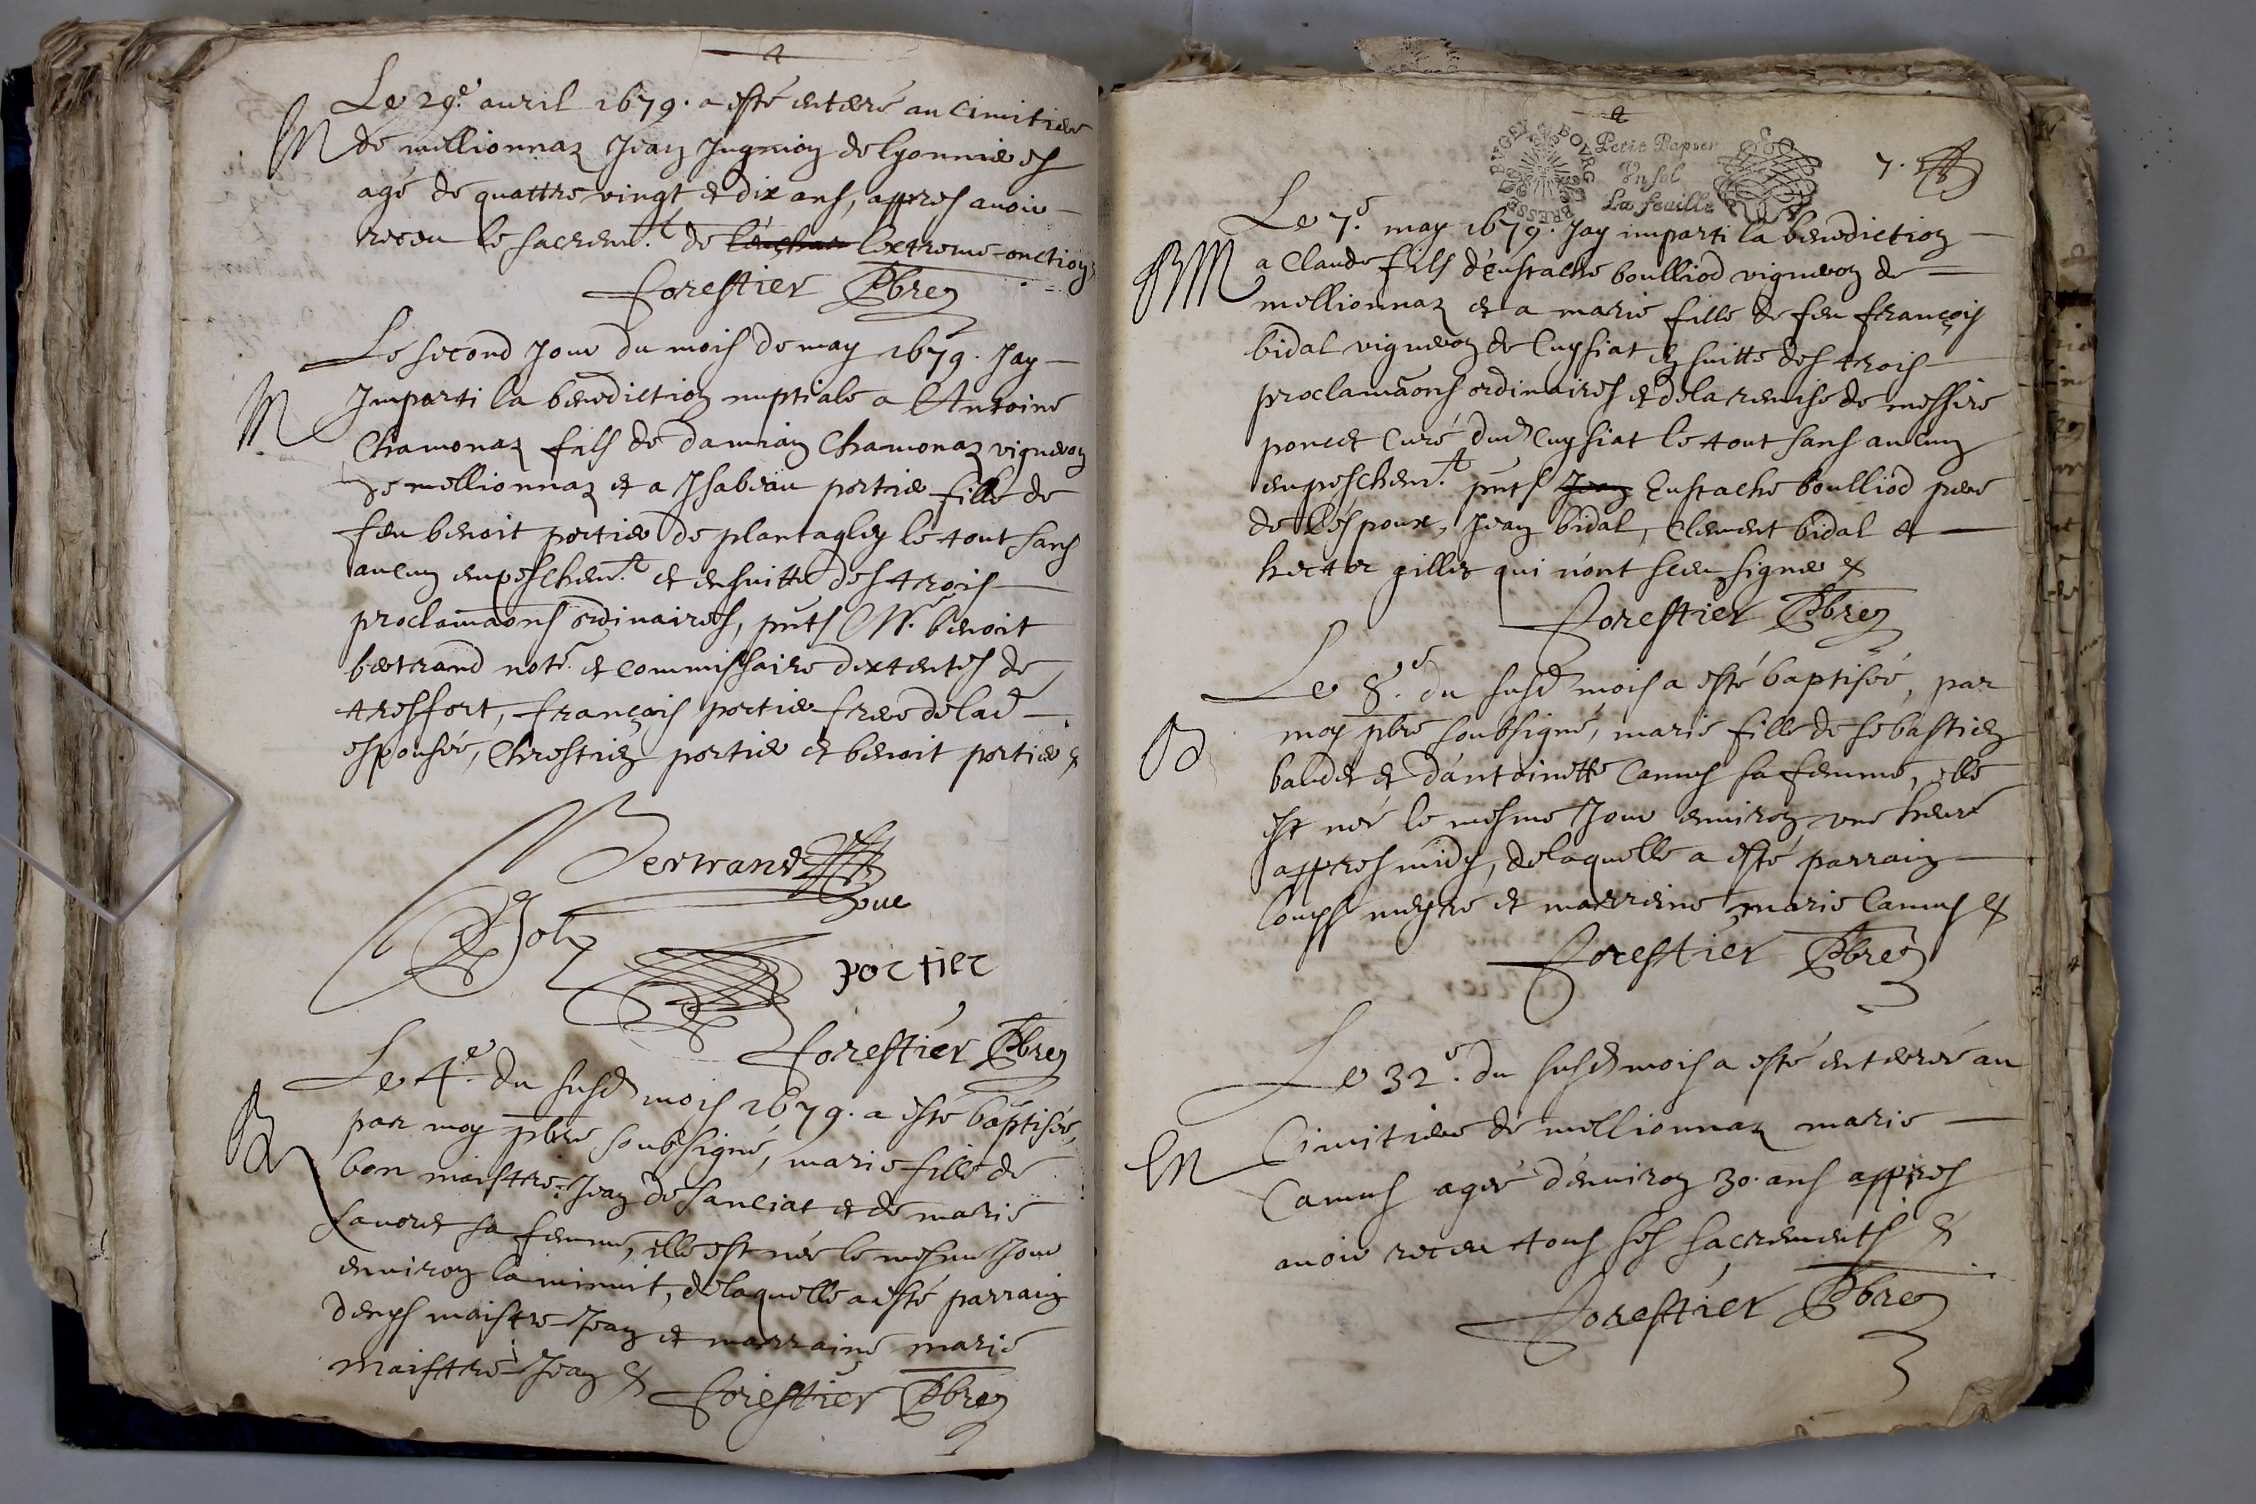 Le 29.e auril 1679. a esté enterré au Cimitiere
M de millionnaz Jean Jugnion de lyonnieres
agé de quattre vingt et dix ans, appres auoir
receu le sacrem.t de l'extreme-onction
Forestier Pbre
Le second Jour du mois de may 1679. Jay
M Imparti la benediction nuptiale a Antoine
Chamonaz fils de damian Chamonaz vigneron
de millionnaz et a Isabeau portier fille de
feu benoit portier de plantagley le tout sans
aucun empeschem.t et ensuitte des trois
proclamaons ordinaires, pnts M.e benoit
bertrand not.e et commissaire dextentes de
treffort, françois portier frere de lad
espousée, Chrestien portier et benoit portier &
Bertrand
Joue
Joly
portier
Forestier Pbre
Le 4.e du susd mois 1679. a esté baptisée,
B par moy pbre soubsigné, marie fille de
bon maistre-Jean de sanciat et de marie
sauoret sa femme, elle est née le mesme Jour
enuiron la minuit, de laquelle a esté parrain
denys maistre Jean et marraine marie
maistre-Jean & Forestier Pbre
BVGEY BOVRG BRESSE
Petit Papier
Vn sol
La feuille
7.
Le 7.e may 1679. Jay imparti la benediction
M a Claude fils d'eustache boulliod vigneron de
millionnaz et a marie fille de feu françois
bidal vigneron de Cuysiat en suitte des trois
proclamaons ordinaires et de la remise de messire
poncet Curé dud Cuysiat le tout sans aucun
empeschem.t pnts Jean Eustache boulliod pere
de l'espoux, Jean bidal, Clement bidal et
hector gillet qui n'ont sceu signer &
Forestier Pbre
Le 8.e du susd mois a esté baptisée, par
B moy pbre soubsigné, marie fille de sebastien
baudet et d'antoinette Camus sa femme, elle
est née le mesme Jour enuiron vne heure
appres midy, de laquelle a esté parrain
Louys et marreine marie Camus &
Forestier Pbre
Le 32.e du susd mois a esté enterrée au
M Cimitiere de millionnaz marie
Camus agée d'enuiron 30. ans appres
auoir receu tous ses sacrements &
Forestier Pbre